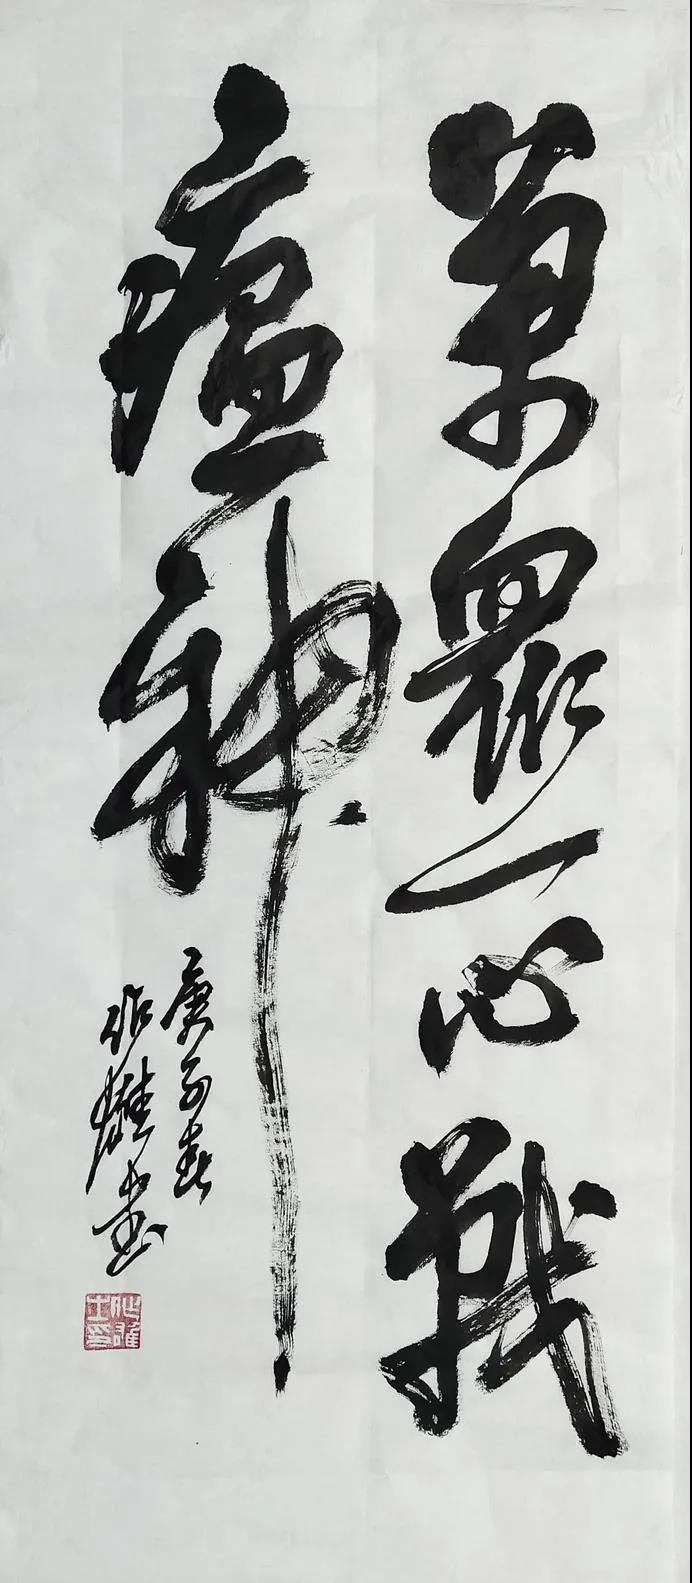 萬眾一心戰
瘟神
庚子春
作雄書